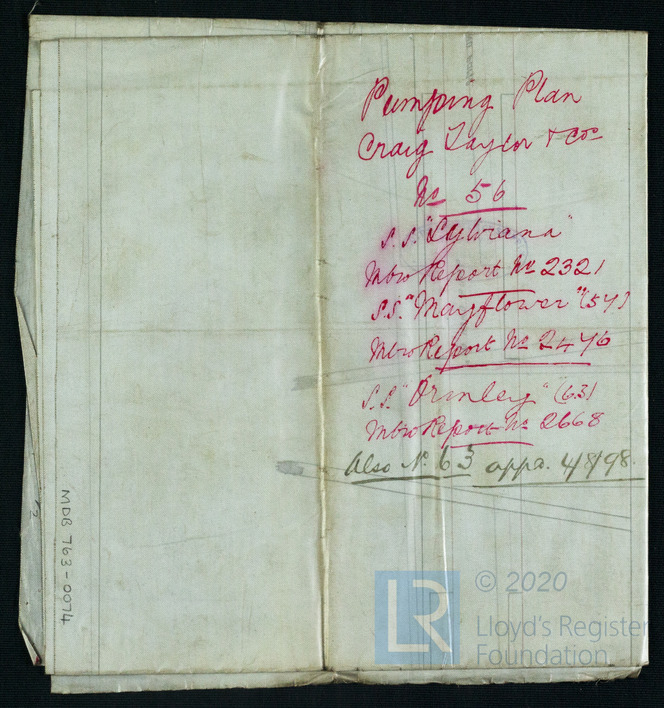 Pumping Plan
Craig Taylor & Cos
No 56
S.S. "Sylviana"
Mbro Report No 2321
S.S. "Mayflower" (57)
Mbro Report No 2476
S.S. "Ormley" (63)
Mbro Report No 2668
Also No. 63 appd. 4/8/98.
MDB 763-0074
2
LR
© 2020
Lloyd's Register
Foundation